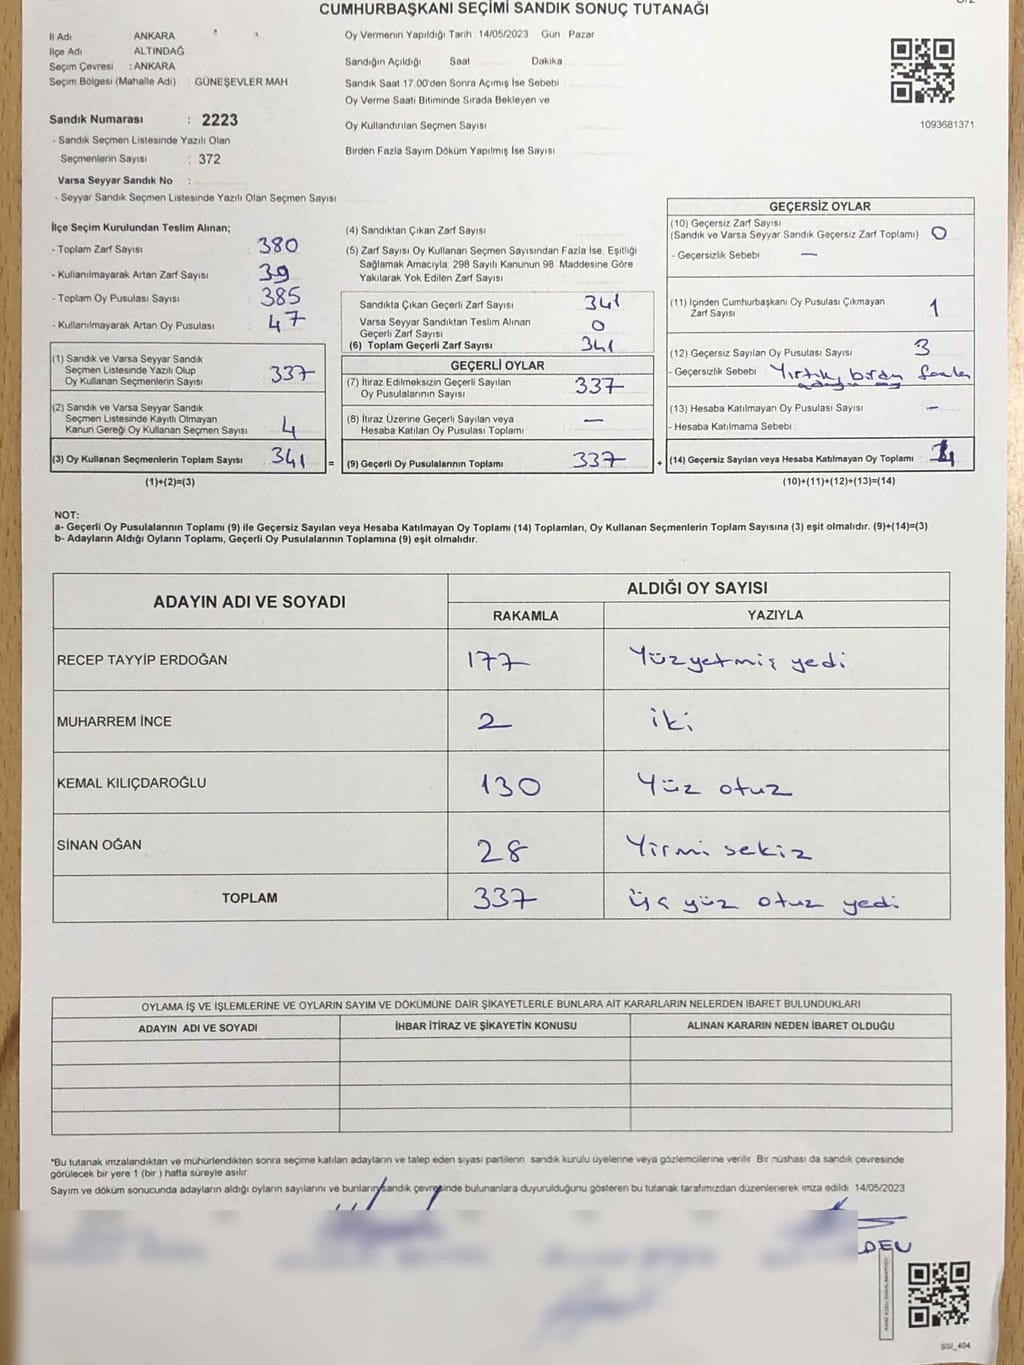 CUMHURBAŞKANI SEÇİMİ SANDIK SONUÇ TUTANAĞI
İl Adı ANKARA
İlçe Adı ALTINDAĞ
Seçim Çevresi : ANKARA
Seçim Bölgesi (Mahalle Adı) : GÜNEŞEVLER MAH.
Sandık Numarası : 2223
- Sandık Seçmen Listesinde Yazılı Olan
Seçmenlerin Sayısı : 372
Varsa Seyyar Sandık No :
- Seyyar Sandık Seçmen Listesinde Yazılı Olan Seçmen Sayısı
Oy Vermenin Yapıldığı Tarih 14/05/2023 Gün Pazar
Sandığın Açıldığı Saat Dakika
Sandık Saat 17.00'den Sonra Açımış İse Sebebi
Oy Verme Saati Bitiminde Sırada Bekleyen ve
Oy Kullandırılan Seçmen Sayısı
Birden Fazla Sayım Döküm Yapılmış İse Sayısı
1093681371
İlçe Seçim Kurulundan Teslim Alınan;
- Toplam Zarf Sayısı 380
- Kullanılmayarak Artan Zarf Sayısı 39
- Toplam Oy Pusulası Sayısı 385
- Kullanılmayarak Artan Oy Pusulası 47
(1) Sandık ve Varsa Seyyar Sandık
Seçmen Listesinde Yazılı Olup
Oy Kullanan Seçmenlerin Sayısı 337
(2) Sandık ve Varsa Seyyar Sandık
Seçmen Listesinde Kayıtlı Olmayan
Kanun Gereği Oy Kullanan Seçmen Sayısı 4
(3) Oy Kullanan Seçmenlerin Toplam Sayısı 341 =
(1)+(2)=(3)
(4) Sandıktan Çıkan Zarf Sayısı
(5) Zarf Sayısı Oy Kullanan Seçmen Sayısından Fazla İse, Eşitliği
Sağlamak Amacıyla, 298 Sayılı Kanunun 98. Maddesine Göre
Yakılarak Yok Edilen Zarf Sayısı
Sandıkta Çıkan Geçerli Zarf Sayısı 341
Varsa Seyyar Sandıktan Teslim Alınan
Geçerli Zarf Sayısı 0
(6) Toplam Geçerli Zarf Sayısı 341
GEÇERLİ OYLAR
(7) İtiraz Edilmeksizin Geçerli Sayılan
Oy Pusulalarının Sayısı 337
(8) İtiraz Üzerine Geçerli Sayılan veya
Hesaba Katılan Oy Pusulası Toplamı —
(9) Geçerli Oy Pusulalarının Toplamı 337 +
GEÇERSİZ OYLAR
(10) Geçersiz Zarf Sayısı
(Sandık ve Varsa Seyyar Sandık Geçersiz Zarf Toplamı) 0
- Geçersizlik Sebebi —
(11) İçinden Cumhurbaşkanı Oy Pusulası Çıkmayan
Zarf Sayısı 1
(12) Geçersiz Sayılan Oy Pusulası Sayısı 3
- Geçersizlik Sebebi Yırtık, birden fazla
(13) Hesaba Katılmayan Oy Pusulası Sayısı —
- Hesaba Katılmama Sebebi
(14) Geçersiz Sayılan veya Hesaba Katılmayan Oy Toplamı 4
(10)+(11)+(12)+(13)=(14)
NOT:
a- Geçerli Oy Pusulalarının Toplamı (9) ile Geçersiz Sayılan veya Hesaba Katılmayan Oy Toplamı (14) Toplamları, Oy Kullanan Seçmenlerin Toplam Sayısına (3) eşit olmalıdır. (9)+(14)=(3)
b- Adayların Aldığı Oyların Toplamı, Geçerli Oy Pusulalarının Toplamına (9) eşit olmalıdır.
ADAYIN ADI VE SOYADI ALDIĞI OY SAYISI
RAKAMLA YAZIYLA
RECEP TAYYİP ERDOĞAN 177 Yüzyetmiş yedi
MUHARREM İNCE 2 iki
KEMAL KILIÇDAROĞLU 130 Yüz otuz
SİNAN OĞAN 28 Yirmi sekiz
TOPLAM 337 Üç yüz otuz yedi
OYLAMA İŞ VE İŞLEMLERİNE VE OYLARIN SAYIM VE DÖKÜMÜNE DAİR ŞİKAYETLERLE BUNLARA AİT KARARLARIN NELERDEN İBARET BULUNDUKLARI
ADAYIN ADI VE SOYADI İHBAR İTİRAZ VE ŞİKAYETİN KONUSU ALINAN KARARIN NEDEN İBARET OLDUĞU
*Bu tutanak imzalandıktan ve mühürlendikten sonra seçime katılan adayların ve talep eden siyasi partilerin sandık kurulu üyelerine veya gözlemcilerine verilir. Bir nüshası da sandık çevresinde
görülecek bir yere 1 (bir) hafta süreyle asılır.
Sayım ve döküm sonucunda adayların aldığı oyların sayılarını ve bunların sandık çevresinde bulunanlara duyurulduğunu gösteren bu tutanak tarafımızdan düzenlenerek imza edildi 14/05/2023
SSI_404